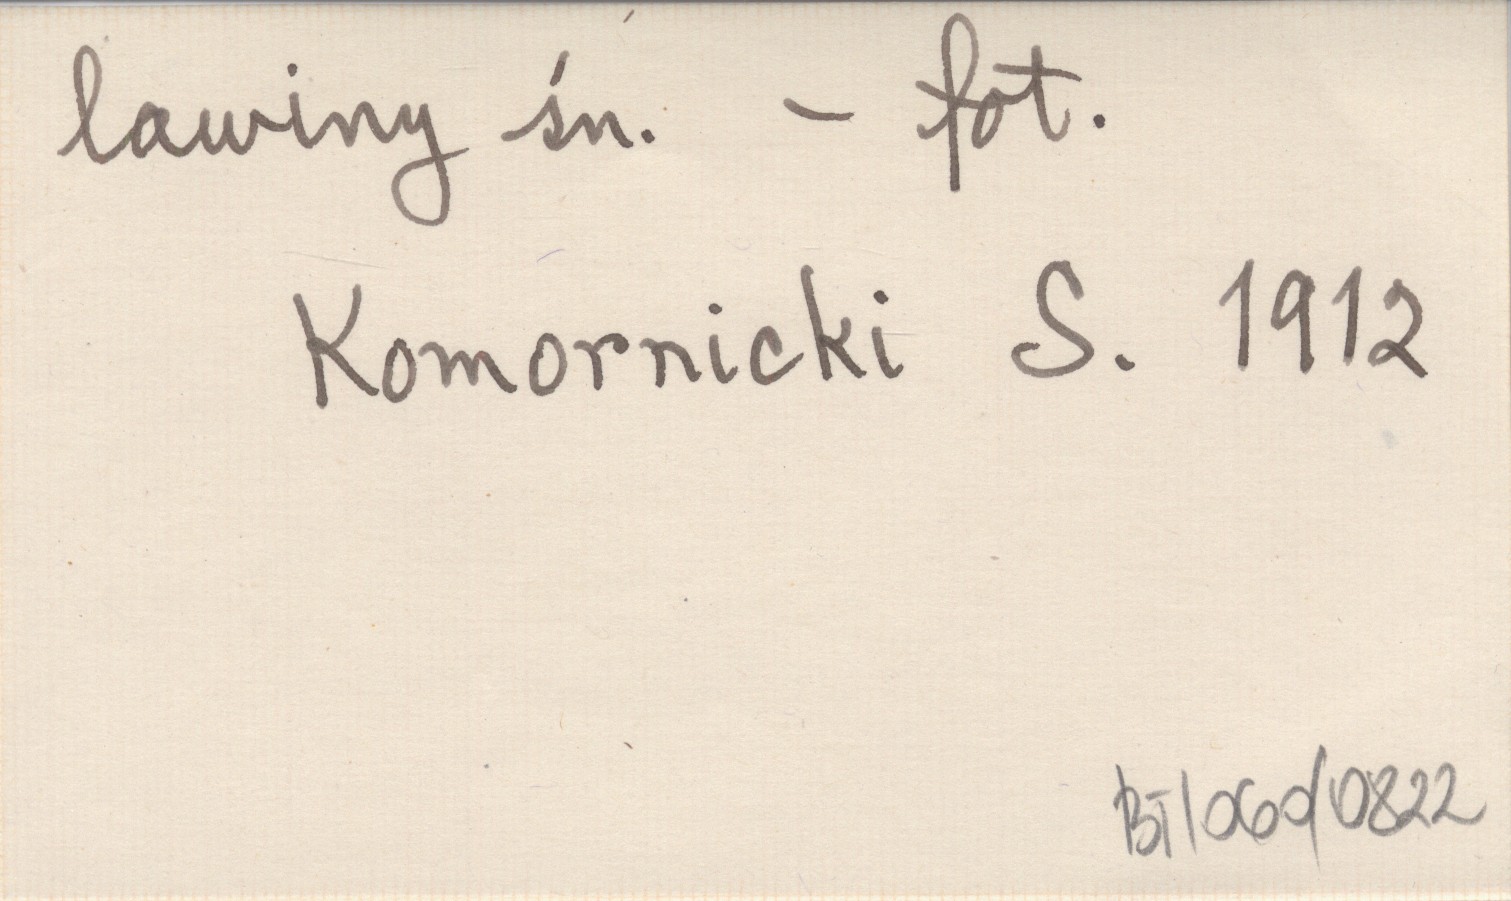 lawiny śn. - fot.
Komornicki S. 1912
BT/060/0822